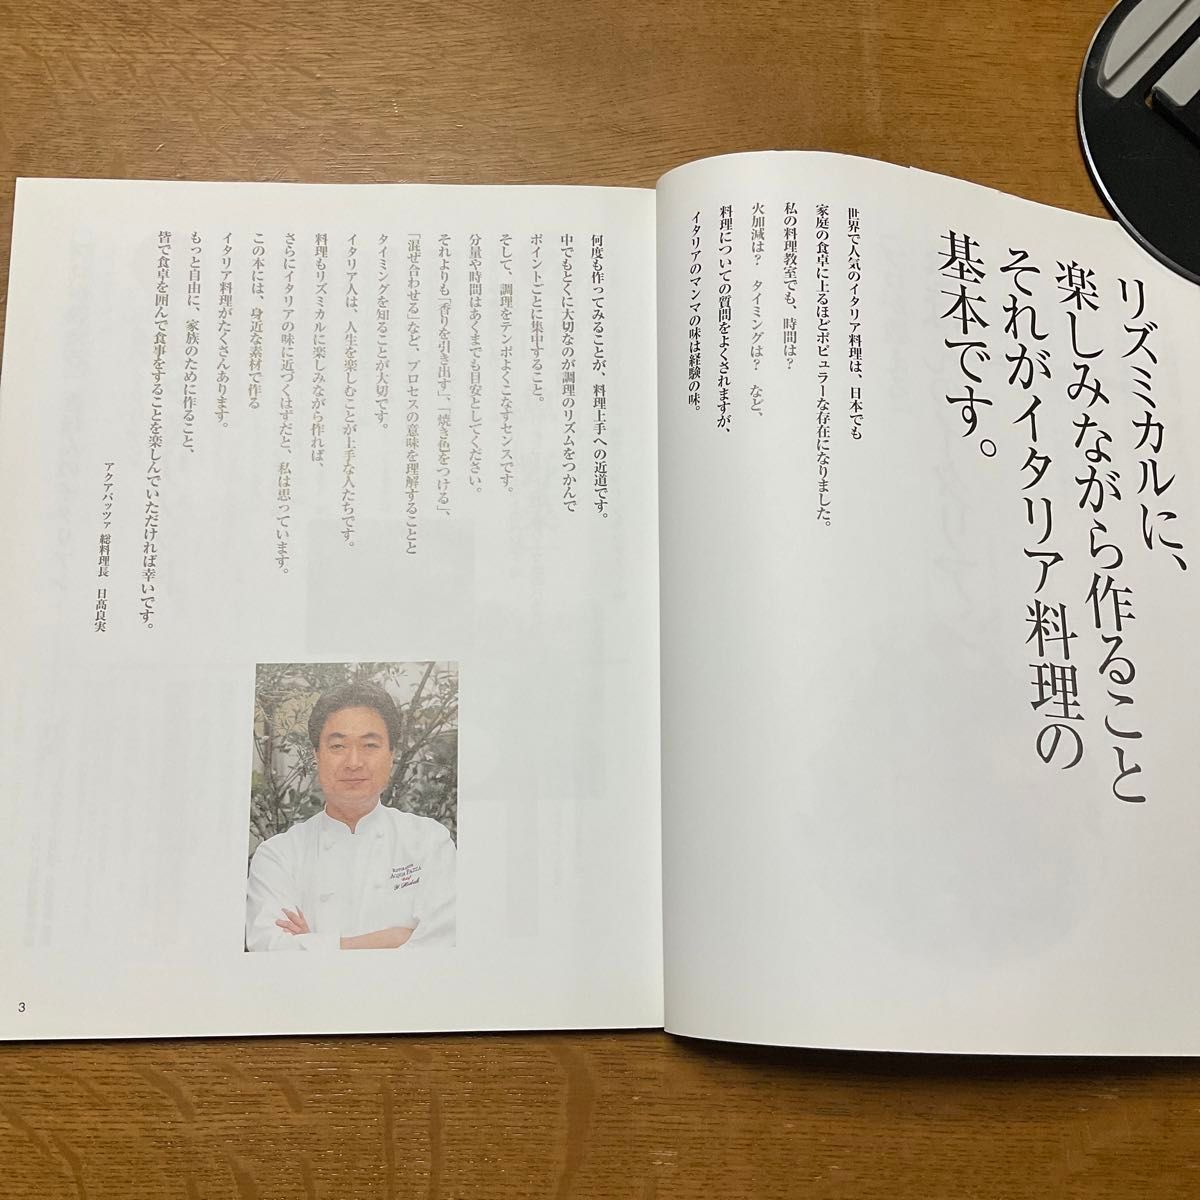 リズミカルに、
楽しみながら作ること
それがイタリア料理の
基本です。
世界で人気のイタリア料理は、日本でも
家庭の食卓に上るほどポピュラーな存在になりました。
私の料理教室でも、時間は?
火加減は? タイミングは? など、
料理についての質問をよくされますが、
イタリアのマンマの味は経験の味。
何度も作ってみることが、料理上手への近道です。
中でもとくに大切なのが調理のリズムをつかんで
ポイントごとに集中すること。
そして、調理をテンポよくこなすセンスです。
分量や時間はあくまでも目安としてください。
それよりも「香りを引き出す」、「焼き色をつける」、
「混ぜ合わせる」など、プロセスの意味を理解することと
タイミングを知ることが大切です。
イタリア人は、人生を楽しむことが上手な人たちです。
料理もリズミカルに楽しみながら作れば、
さらにイタリアの味に近づくはずだと、私は思っています。
この本には、身近な素材で作る
イタリア料理がたくさんあります。
もっと自由に、家族のために作ること、
皆で食卓を囲んで食事をすることを楽しんでいただければ幸いです。
アクアパッツァ 総料理長 日髙良実
ACQUA PAZZA
3